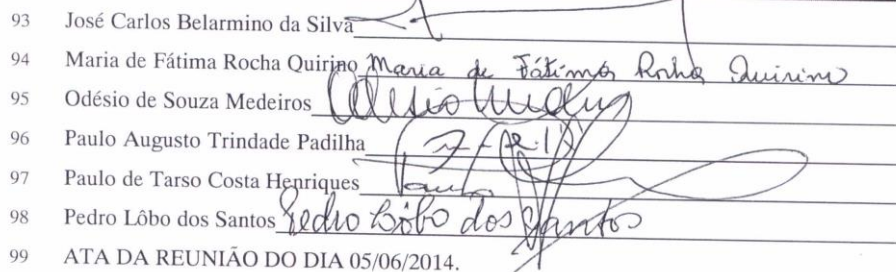 93 José Carlos Belarmino da Silva
94 Maria de Fátima Rocha Quirino Maria de Fátima Rocha Quirino
95 Odésio de Souza Medeiros
96 Paulo Augusto Trindade Padilha
97 Paulo de Tarso Costa Henriques Paulo
98 Pedro Lôbo dos Santos Pedro Lôbo dos Santos
99 ATA DA REUNIÃO DO DIA 05/06/2014.